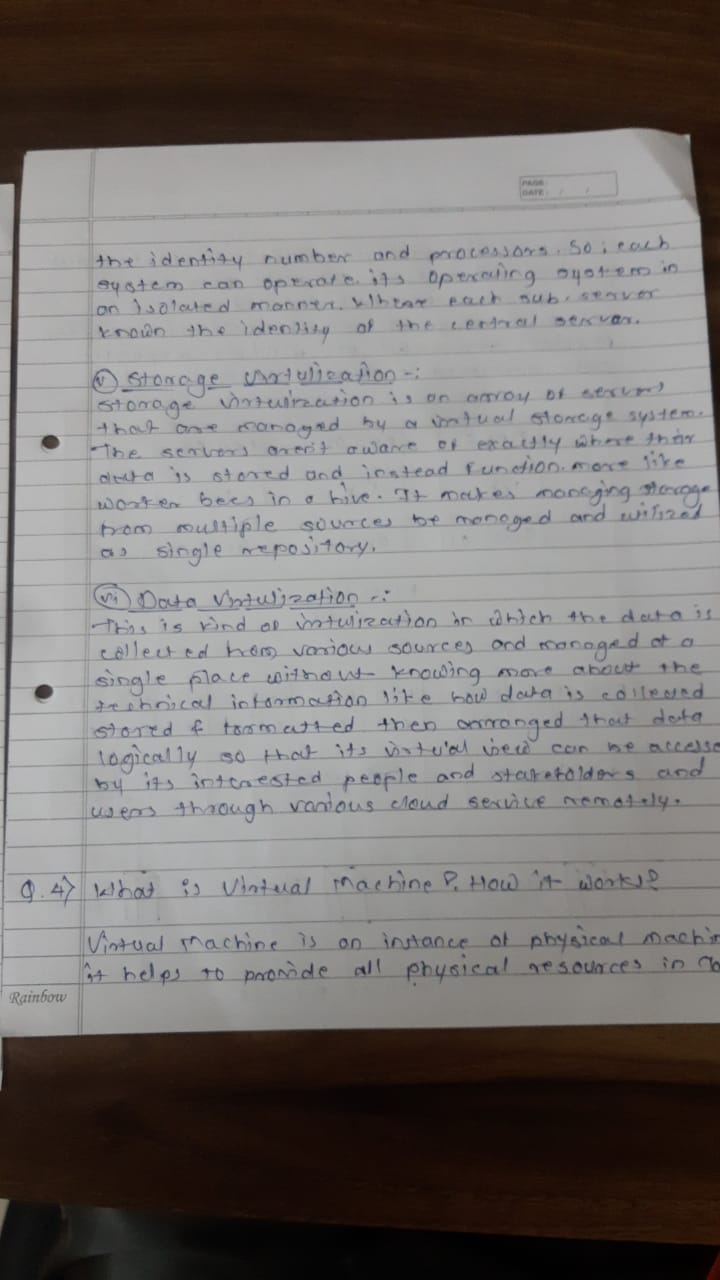 PAGE:
DATE: / /
the identity number and processors. So, each
system can operate its operating system in
an isolated manner. Where each sub-server
known the identity of the central server.
(v) Storage virtulization -:
Storage virtulization is an array of servers
that are managed by a virtual storage system.
The servers aren't aware of exactly where their
data is stored and instead function more like
worker bees in a hive. It makes managing storage
from multiple sources be managed and utilized
as single repository.
(vi) Data Virtulization -:
This is kind of virtulization in which the data is
collected from various sources and managed at a
single place without knowing more about the
technical information like how data is collected
stored & formatted then arranged that data
logically so that its virtual view can be accesse
by its interested people and stakeholders and
users through various cloud service remotely.
Q.4) What is Virtual Machine? How it works?
Virtual Machine is an instance of physical machin
it helps to provide all physical resources in
Rainbow